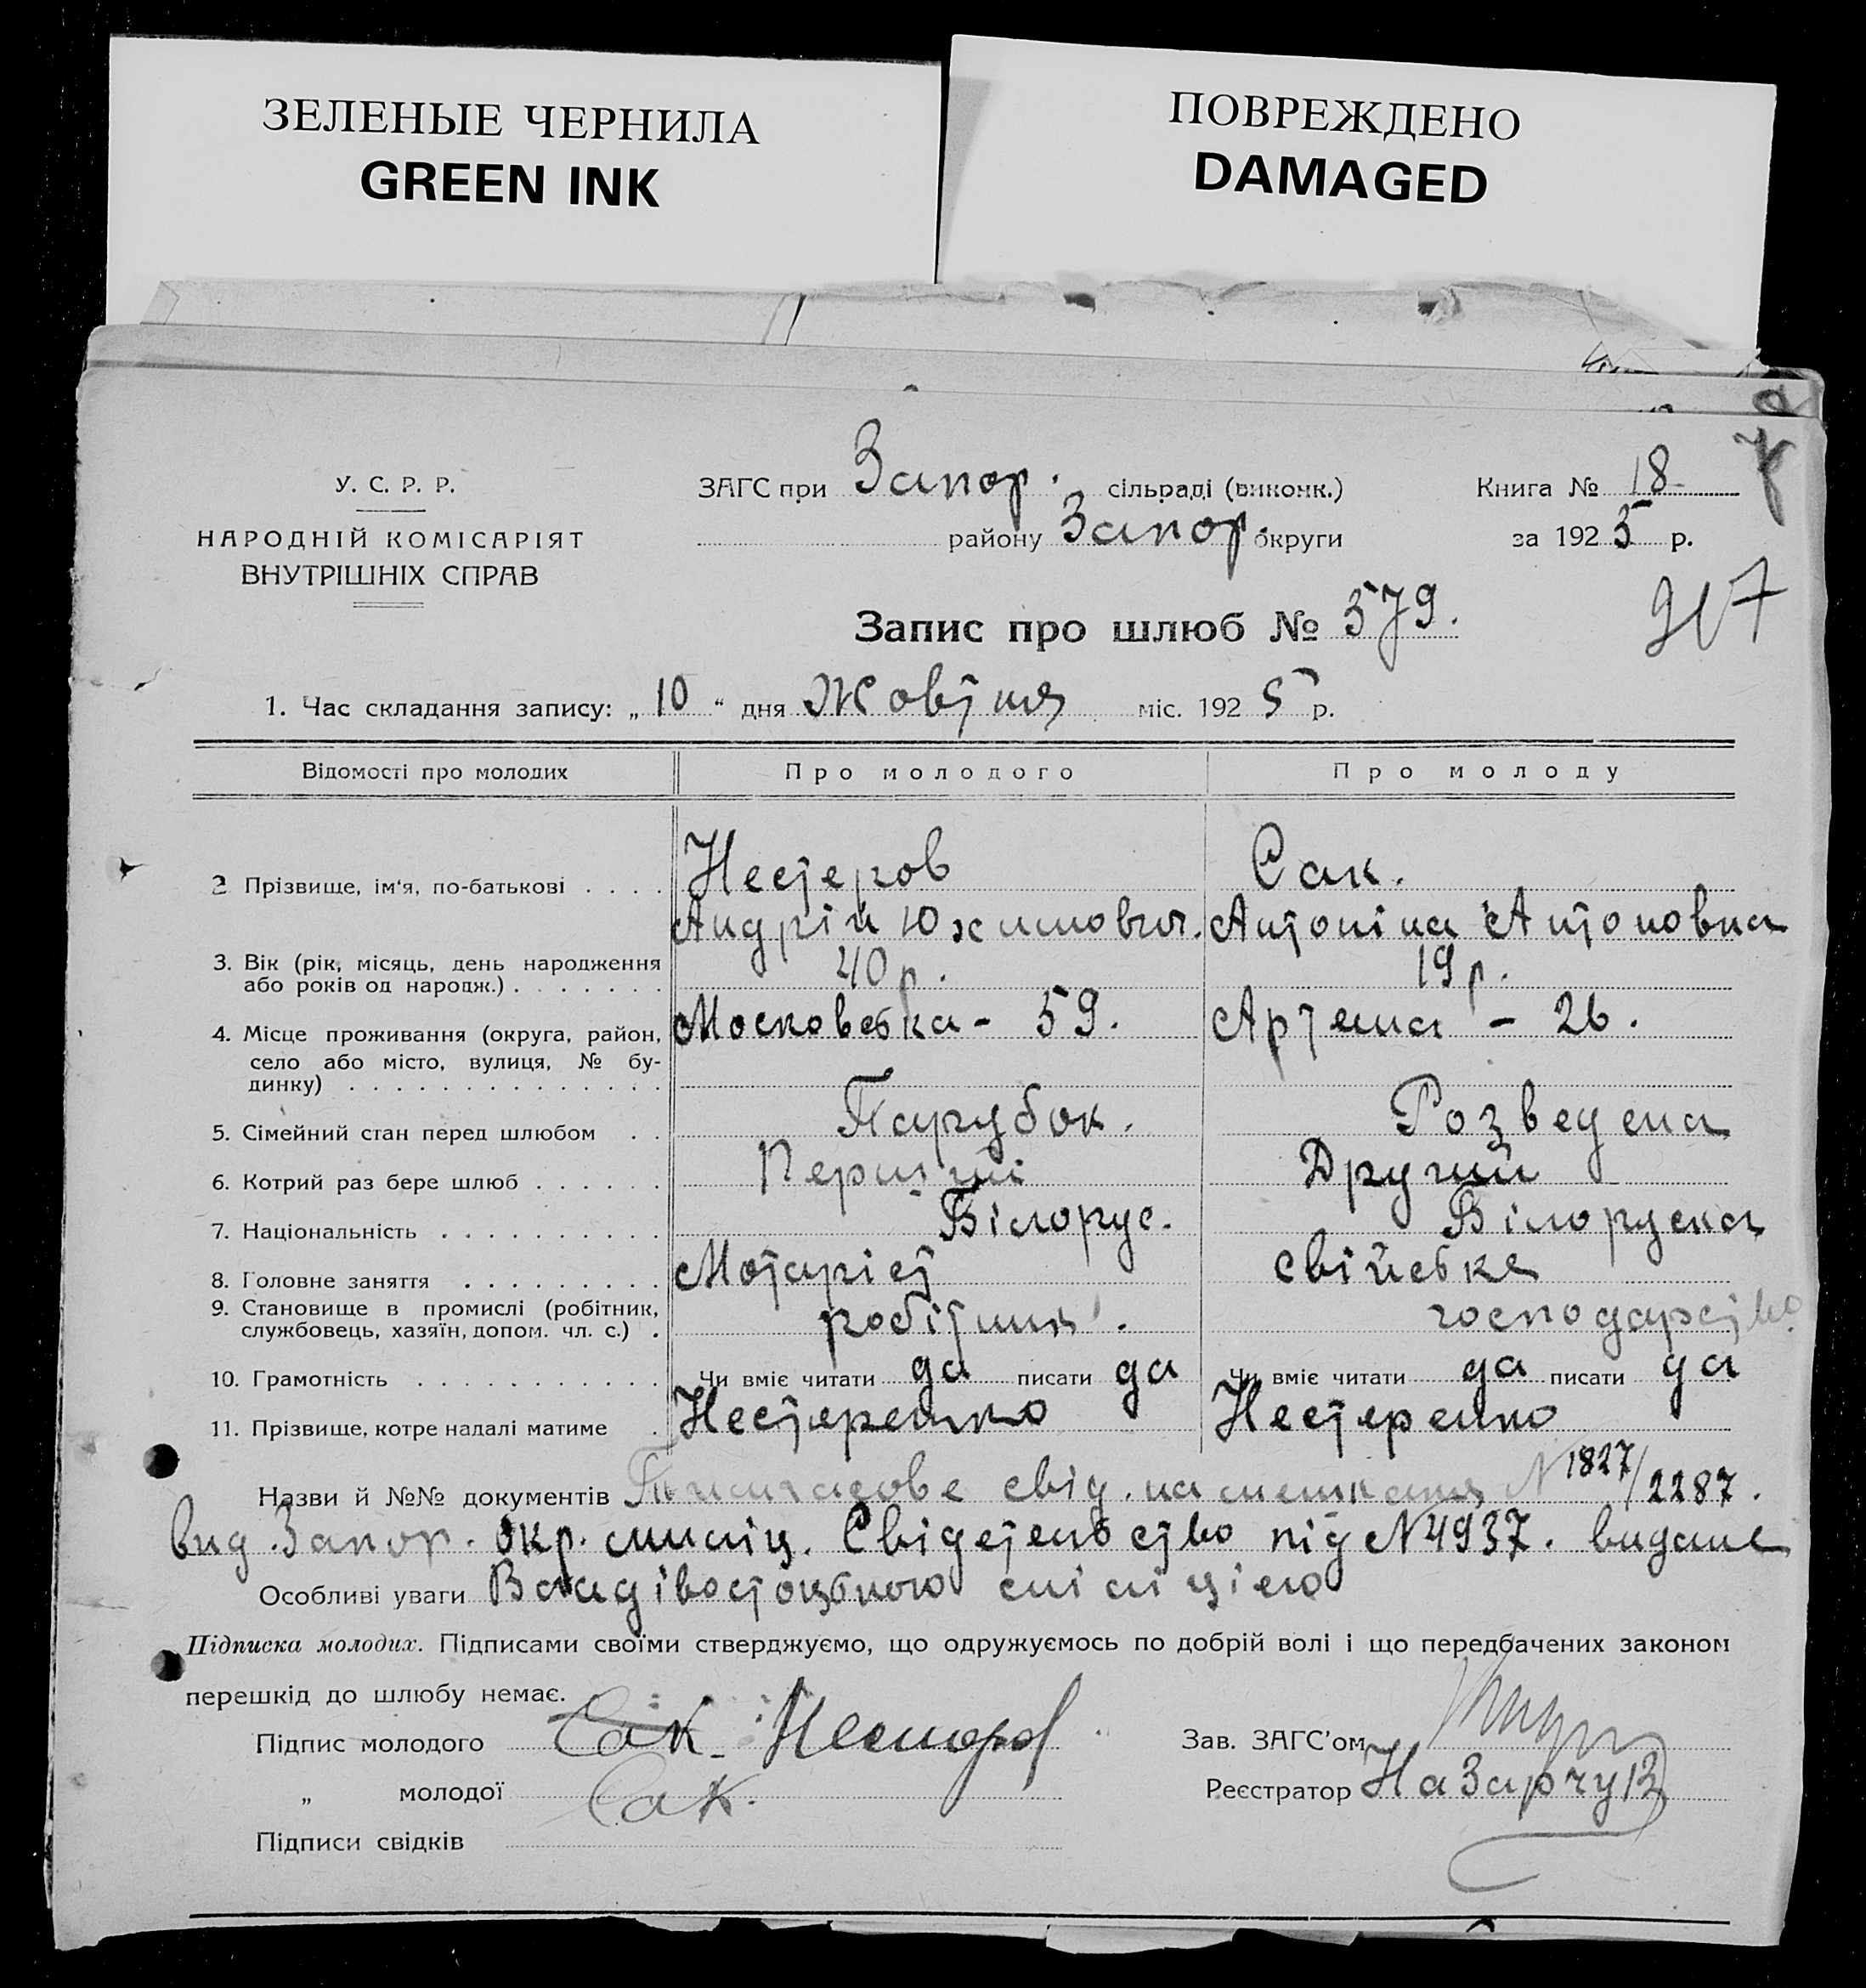 ЗЕЛЕНЫЕ ЧЕРНИЛА
GREEN INK
ПОВРЕЖДЕНО
DAMAGED
У. С. Р. Р.
НАРОДНІЙ КОМІСАРІЯТ
ВНУТРІШНІХ СПРАВ
ЗАГС при Запор. сільраді (виконк.)
району Запор. округи
Книга № 18
за 1925 р.
Запис про шлюб № 579.
1. Час складання запису: „ 10 “ дня Жовтня міс. 1925 р.
Відомості про молодих Про молодого Про молоду
2 Прізвище, ім'я, по-батькові . . . . Нестеров Сак.
Андрій Юхимович. Антоніна Антоновна
3. Вік (рік, місяць, день народження 40 р. 19 р.
або років од народж.) . . . . . . .
4. Місце проживання (округа, район, Московська - 59. Артема - 26.
село або місто, вулиця, № бу-
динку) . . . . . . . . . . . . . .
5. Сімейний стан перед шлюбом . . Парубок. Розведена
6. Котрий раз бере шлюб . . . . . . Перший Другий
7. Національність . . . . . . . . . . Білорус. Білоруска
8. Головне заняття . . . . . . . . . Моторіст свійське
9. Становище в промислі (робітник, робітник. господарство
службовець, хазяїн, допом. чл. с.) .
10. Грамотність . . . . . . . . . . . Чи вміє читати да писати да Чи вміє читати да писати да
11. Прізвище, котре надалі матиме . Нестеренко Нестеренко
Назви й №№ документів Тимчасове свід. на мешкання N 1827/2287.
вид. Запор. Окр. міліц. Свідетельство під N 4937. видане
Особливі уваги Владівостоцькою міліцією
Підписка молодих. Підписами своїми стверджуємо, що одружуємось по добрій волі і що передбачених законом
перешкід до шлюбу немає.
Підпис молодого Сак Нестеров
„ молодої Сак.
Підписи свідків
Зав. ЗАГС'ом
Реєстратор Назарчук